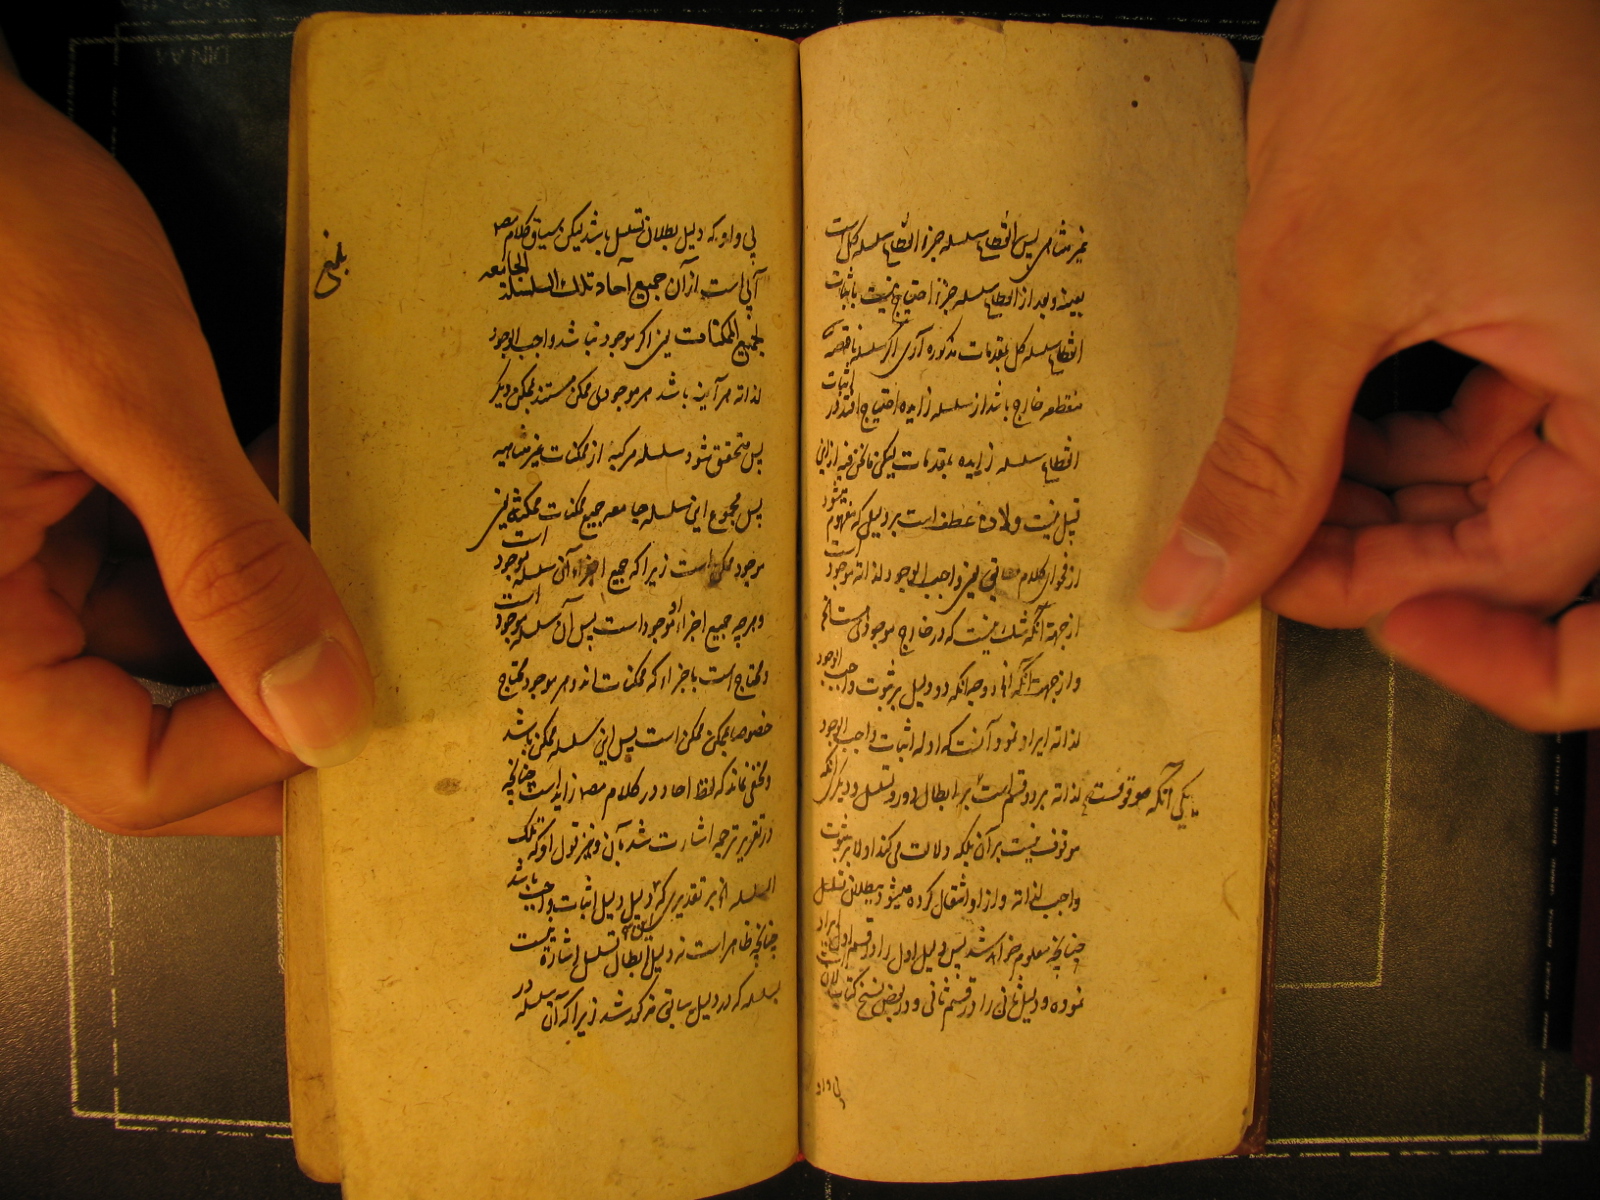 غیر متناهی پس انقطاع سلسله جزء انقطاع سلسله کل است
بعینه و بعد از انقطاع سلسله جزء احتیاج نیست باثبات
انقطاع سلسله کل بمقدمات مذکوره آری اگر سلسله ناقصه
منقطعه خارج باشد از سلسله زایده احتیاج افتد در اثبات
انقطاع سلسله زایده بمقدمات لیکن مانحن فیه ازین
قبیل نیست ولانه عطف است بر دلیل که مفهوم میشود
از فحوای کلام سابق یعنی واجب الوجود لذاته موجود است
از جهة آنکه شک نیست که در خارج موجودی
و از جهت آنکه دو دلیل بر ثبوت واجب الوجود
لذاته ایراد نمود آنست که ادله اثبات واجب الوجود
لذاته بر دو قسم است بر ابطال دور و تسلسل و دیگر آنکه
یکی آنکه موقوفست
موقوف نیست بر آن بلکه دلالت می کند اولا بر ثبوت
واجب لذاته و از او انتقال کرده میشود ببطلان تسلسل
چنانچه معلوم خواهد شد پس دلیل اول را از قسم اول ایراد
نموده و دلیل ثانی را از قسم ثانی و در بعض نسخ کتاب لان
بی واو
بی واو که دلیل بطلان تسلسل باشد لیکن سیاق کلام مصـ
آبی است از آن جمیع آحاد تلک السلسلة الجامعه
لجمیع الممکنات یعنی اگر موجود نباشد واجب الوجود
لذاته هر آینه باشد هر موجودی ممکن مستند بممکن دیگر
پس متحقق شود سلسله مرکبه از ممکنات غیر متناهیه
پس مجموع این سلسله جامعه جمیع ممکنات ممکنست یعنی
موجود ممکن است زیرا که جمیع اجزاء این سلسله موجود است
و هرچه جمیع اجزاء او موجود است پس آن سلسله موجود است
و محتاج است باجزاء که ممکنات اند و هر موجود محتاج
خصوصا بممکن ممکن است پس این سلسله ممکن باشد
و مخفی نماند که لفظ احاد در کلام مصـ زاید است چنانچه
در تقریر ترجمه اشارت شد بآن و نیز قول او که تلک
السلسله بر تقدیری که این دلیل دلیل اثبات واجب باشد
چنانچه ظاهر است نه دلیل ابطال تسلسل اشاره نیست
بسلسله که در دلیل سابق مذکور شد زیرا که آن سلسله در